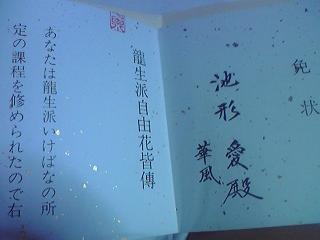 免状
池形愛殿
華風
龍生派自由花皆傳
あなたは龍生派いけばなの所
定の課程を修められたので右